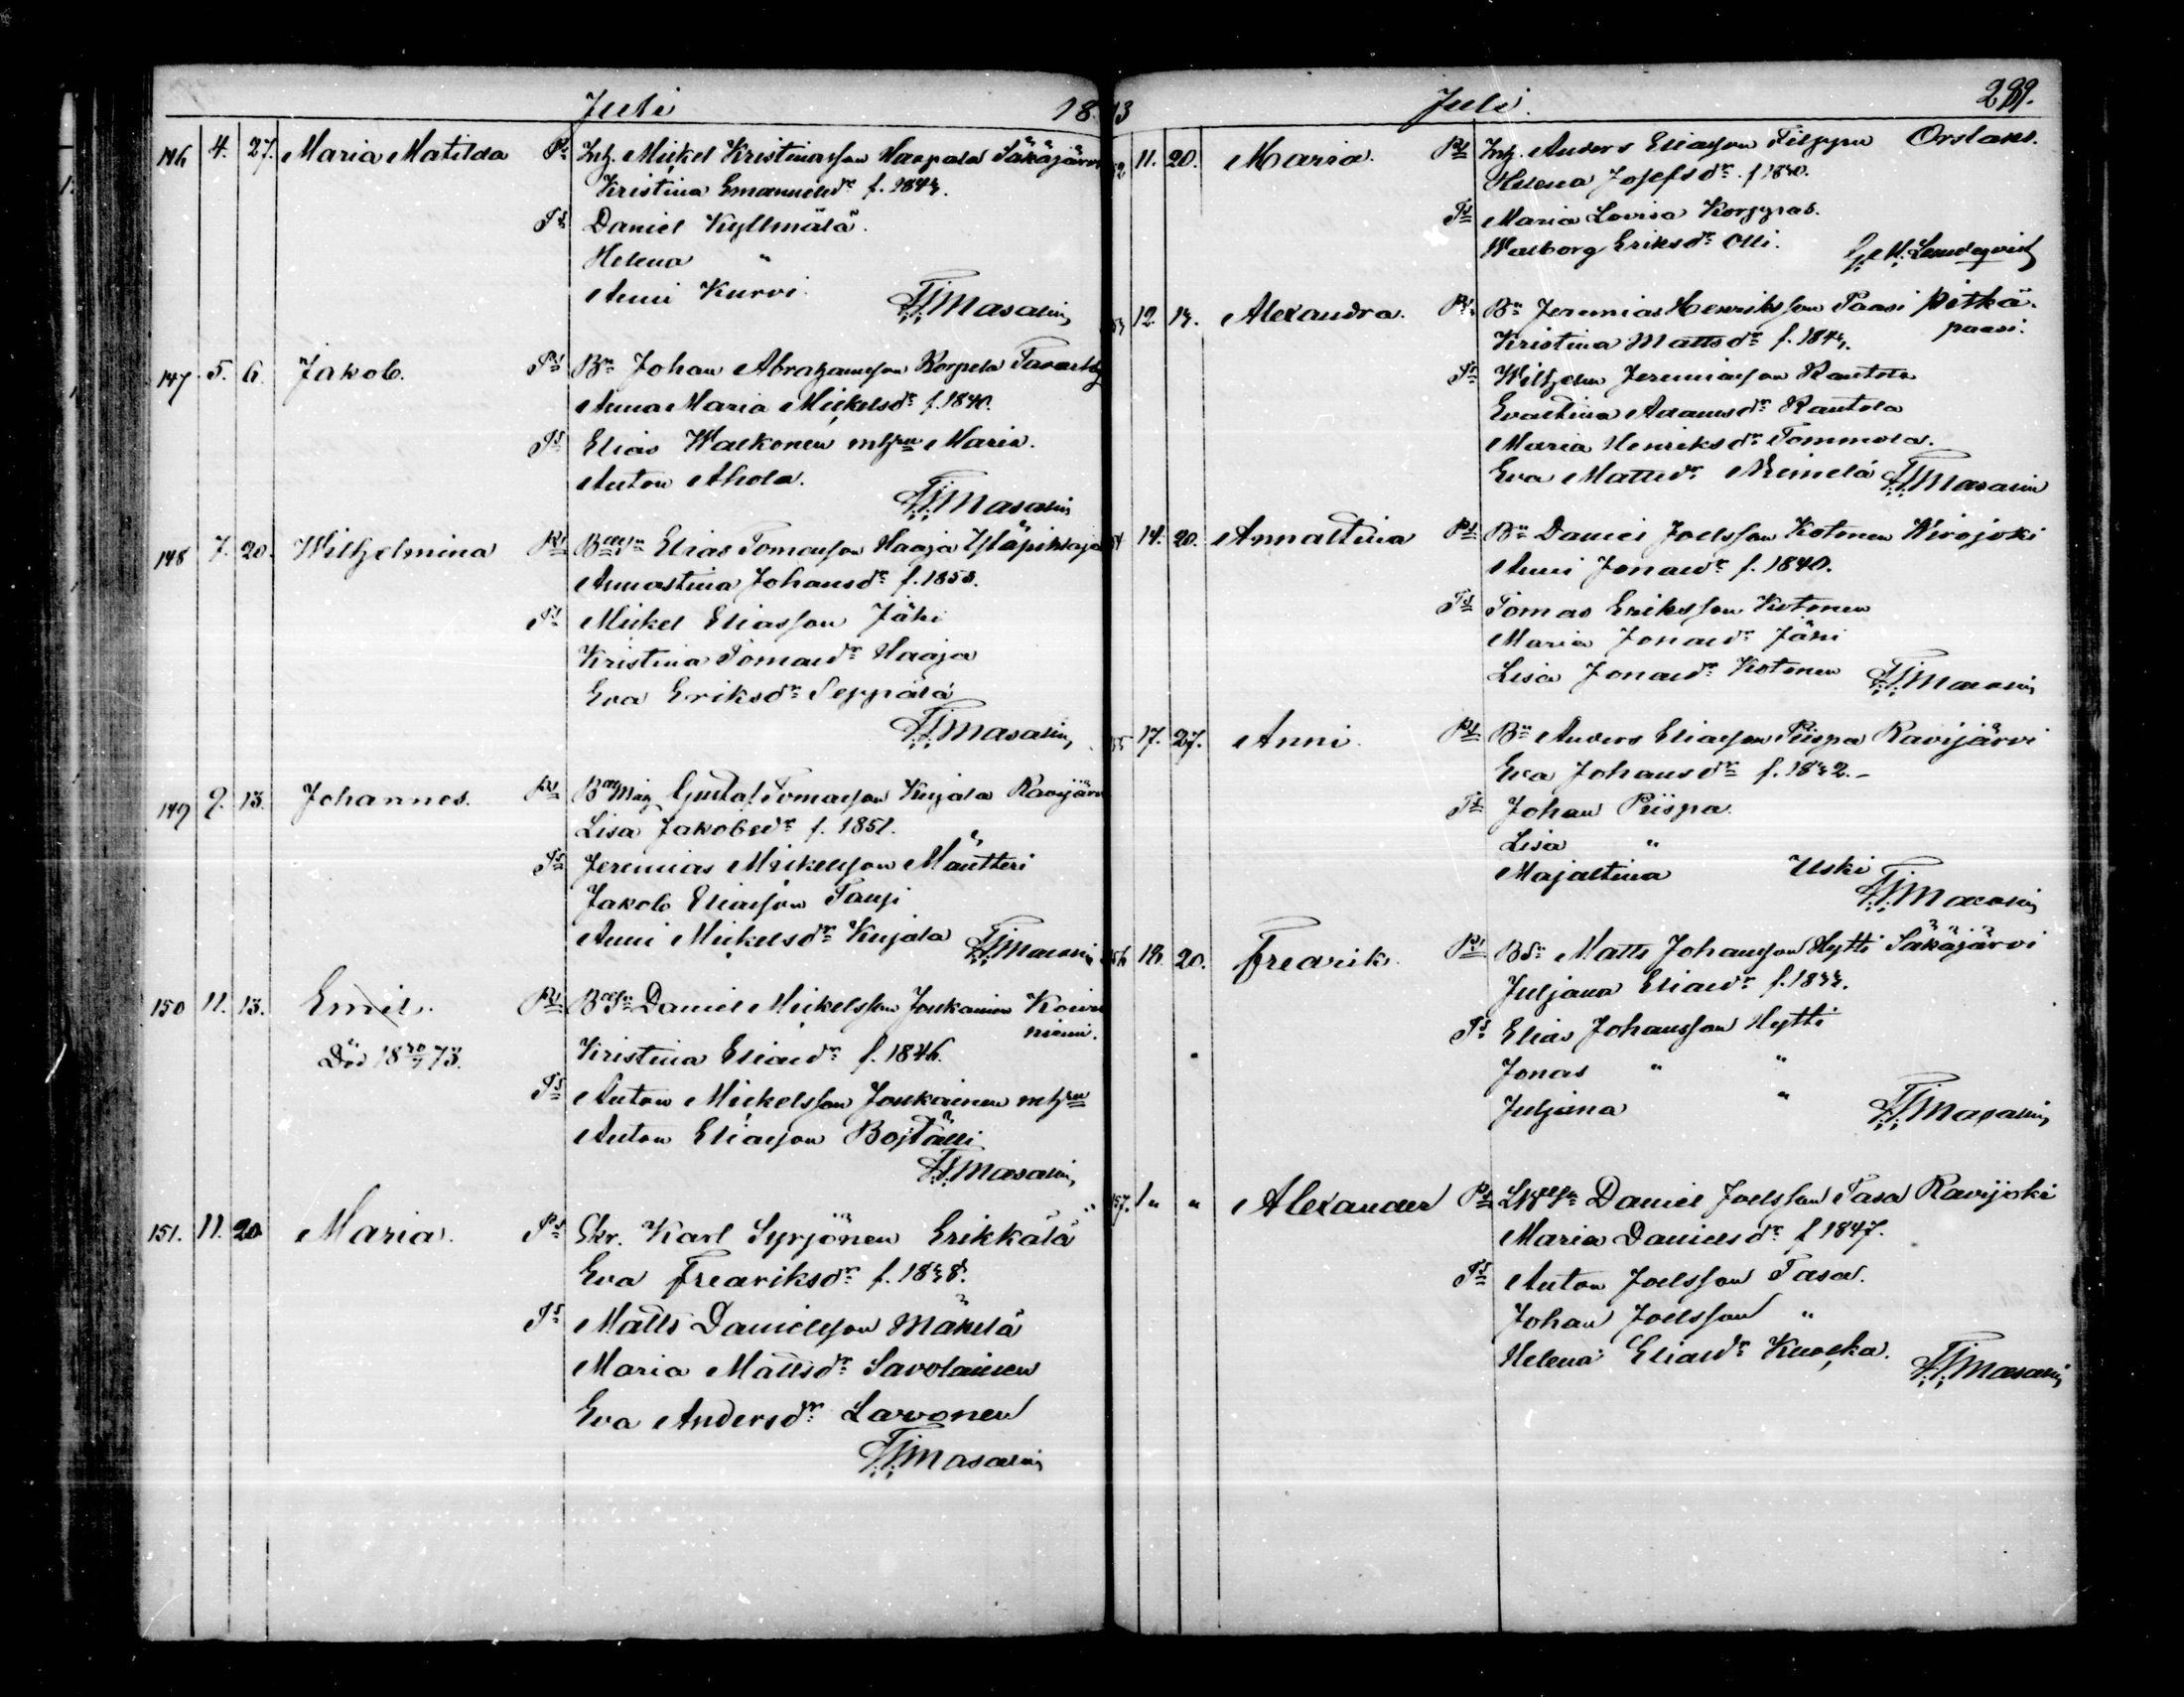 Juli 18
146 4. 27. Maria Matilda Prs Inh. Mickel Kristianson Haapala Säkäjärvi
Kristina Emanuelsdr f. 1844.
Ts Daniel Kyllmälä.
Helena "
Anni Kurvi.
F.J. Masalin
147 5. 6. Jakob. Prs Bn Johan Abrahamsson Korpela Tavastby
Anna Maria Mickelsdr f. 1840.
Ts Elias Walkonen m hru Maria.
Anton Ahola.
F.J. Masalin
148 7. 20. Wilhelmina Prs Elias Tomasson Haaja Yläpihlaja
Annastina Johansdr f. 1850.
Ts Mickel Eliasson Jähi
Kristina Tomasdr Haaja
Eva Eriksdr Seppälä
F.J. Masalin
149 9. 13. Johannes. Prs Gustaf Tomasson Kujala Ravijärvi
Lisa Jakobsdr f. 1851.
Ts Jeremias Mickelsson Mäntteri
Jakob Eliasson Tanji
Anni Mickelsdr Kujala
F.J. Masalin
150 11. 13. Emil. Prs Daniel Mickelsson Joukainen Koivu
niemi.
Död 18 20/7 73. Kristina Eliasdr f. 1846.
Ts Anton Mickelsson Joukainen m hru
Anton Eliasson Boställi
F.J. Masalin
151. 11. 20 Maria. Prs Skr. Karl Syrjönen Erikkälä
Eva Fredriksdr f. 1848.
Ts Matts Danielsson Mäkelä
Maria Mattsdr Savolainen
Eva Andersdr Larvonen
F.J. Masalin
73 Juli. 289.
52 11. 20. Maria. Prs Inh. Anders Eliasson Filppu Orslaks.
Helena Josefsdr. f 1840.
Ts Maria Lovisa Korppas.
Walborg Eriksdr Olli.
G. M. Lindeqvist
53 12. 14. Alexandra. Prs Bn Jeremias Henriksson Paasi Pitkä-
paasi.
Kristina Mattsdr f. 1844.
Ts Wilhelm Jeremiasson Rautola
Evastina Adamsdr Rautola
Maria Henriksdr Tommola.
Eva Mattsdr Niemelä F.J. Masalin
54 14. 20. Annastina Prs Bn Daniel Joelsson Kotonen Wirojoki
Anni Jonasdr f. 1840.
Ts Tomas Eriksson Kotonen
Maria Jonasdr Jähi
Lisa Jonasdr Kotonen F.J. Masalin
55 17. 27. Anni. Prs Bn Anders Eliasson Piispa Ravijärvi
Eva Johansdr f. 1842.-
Ts Johan Piispa.
Lisa "
Majastina Uski
F.J. Masalin
56 18. 20. Fredrik. Prs Matts Johansson Hytti Säkäjärvi
Juljana Eliasdr f. 1844.
Ts Elias Johansson Hytti
Jonas " "
Juljana "
F.J. Masalin
157. 1" " Alexander Prs Daniel Joelsson Tasa Ravijoki
Maria Danielsdr f 1847.
Ts Anton Joelsson Tasa.
Johan Joelsson "
Helena Eliasdr Kuokka.
F.J. Masalin